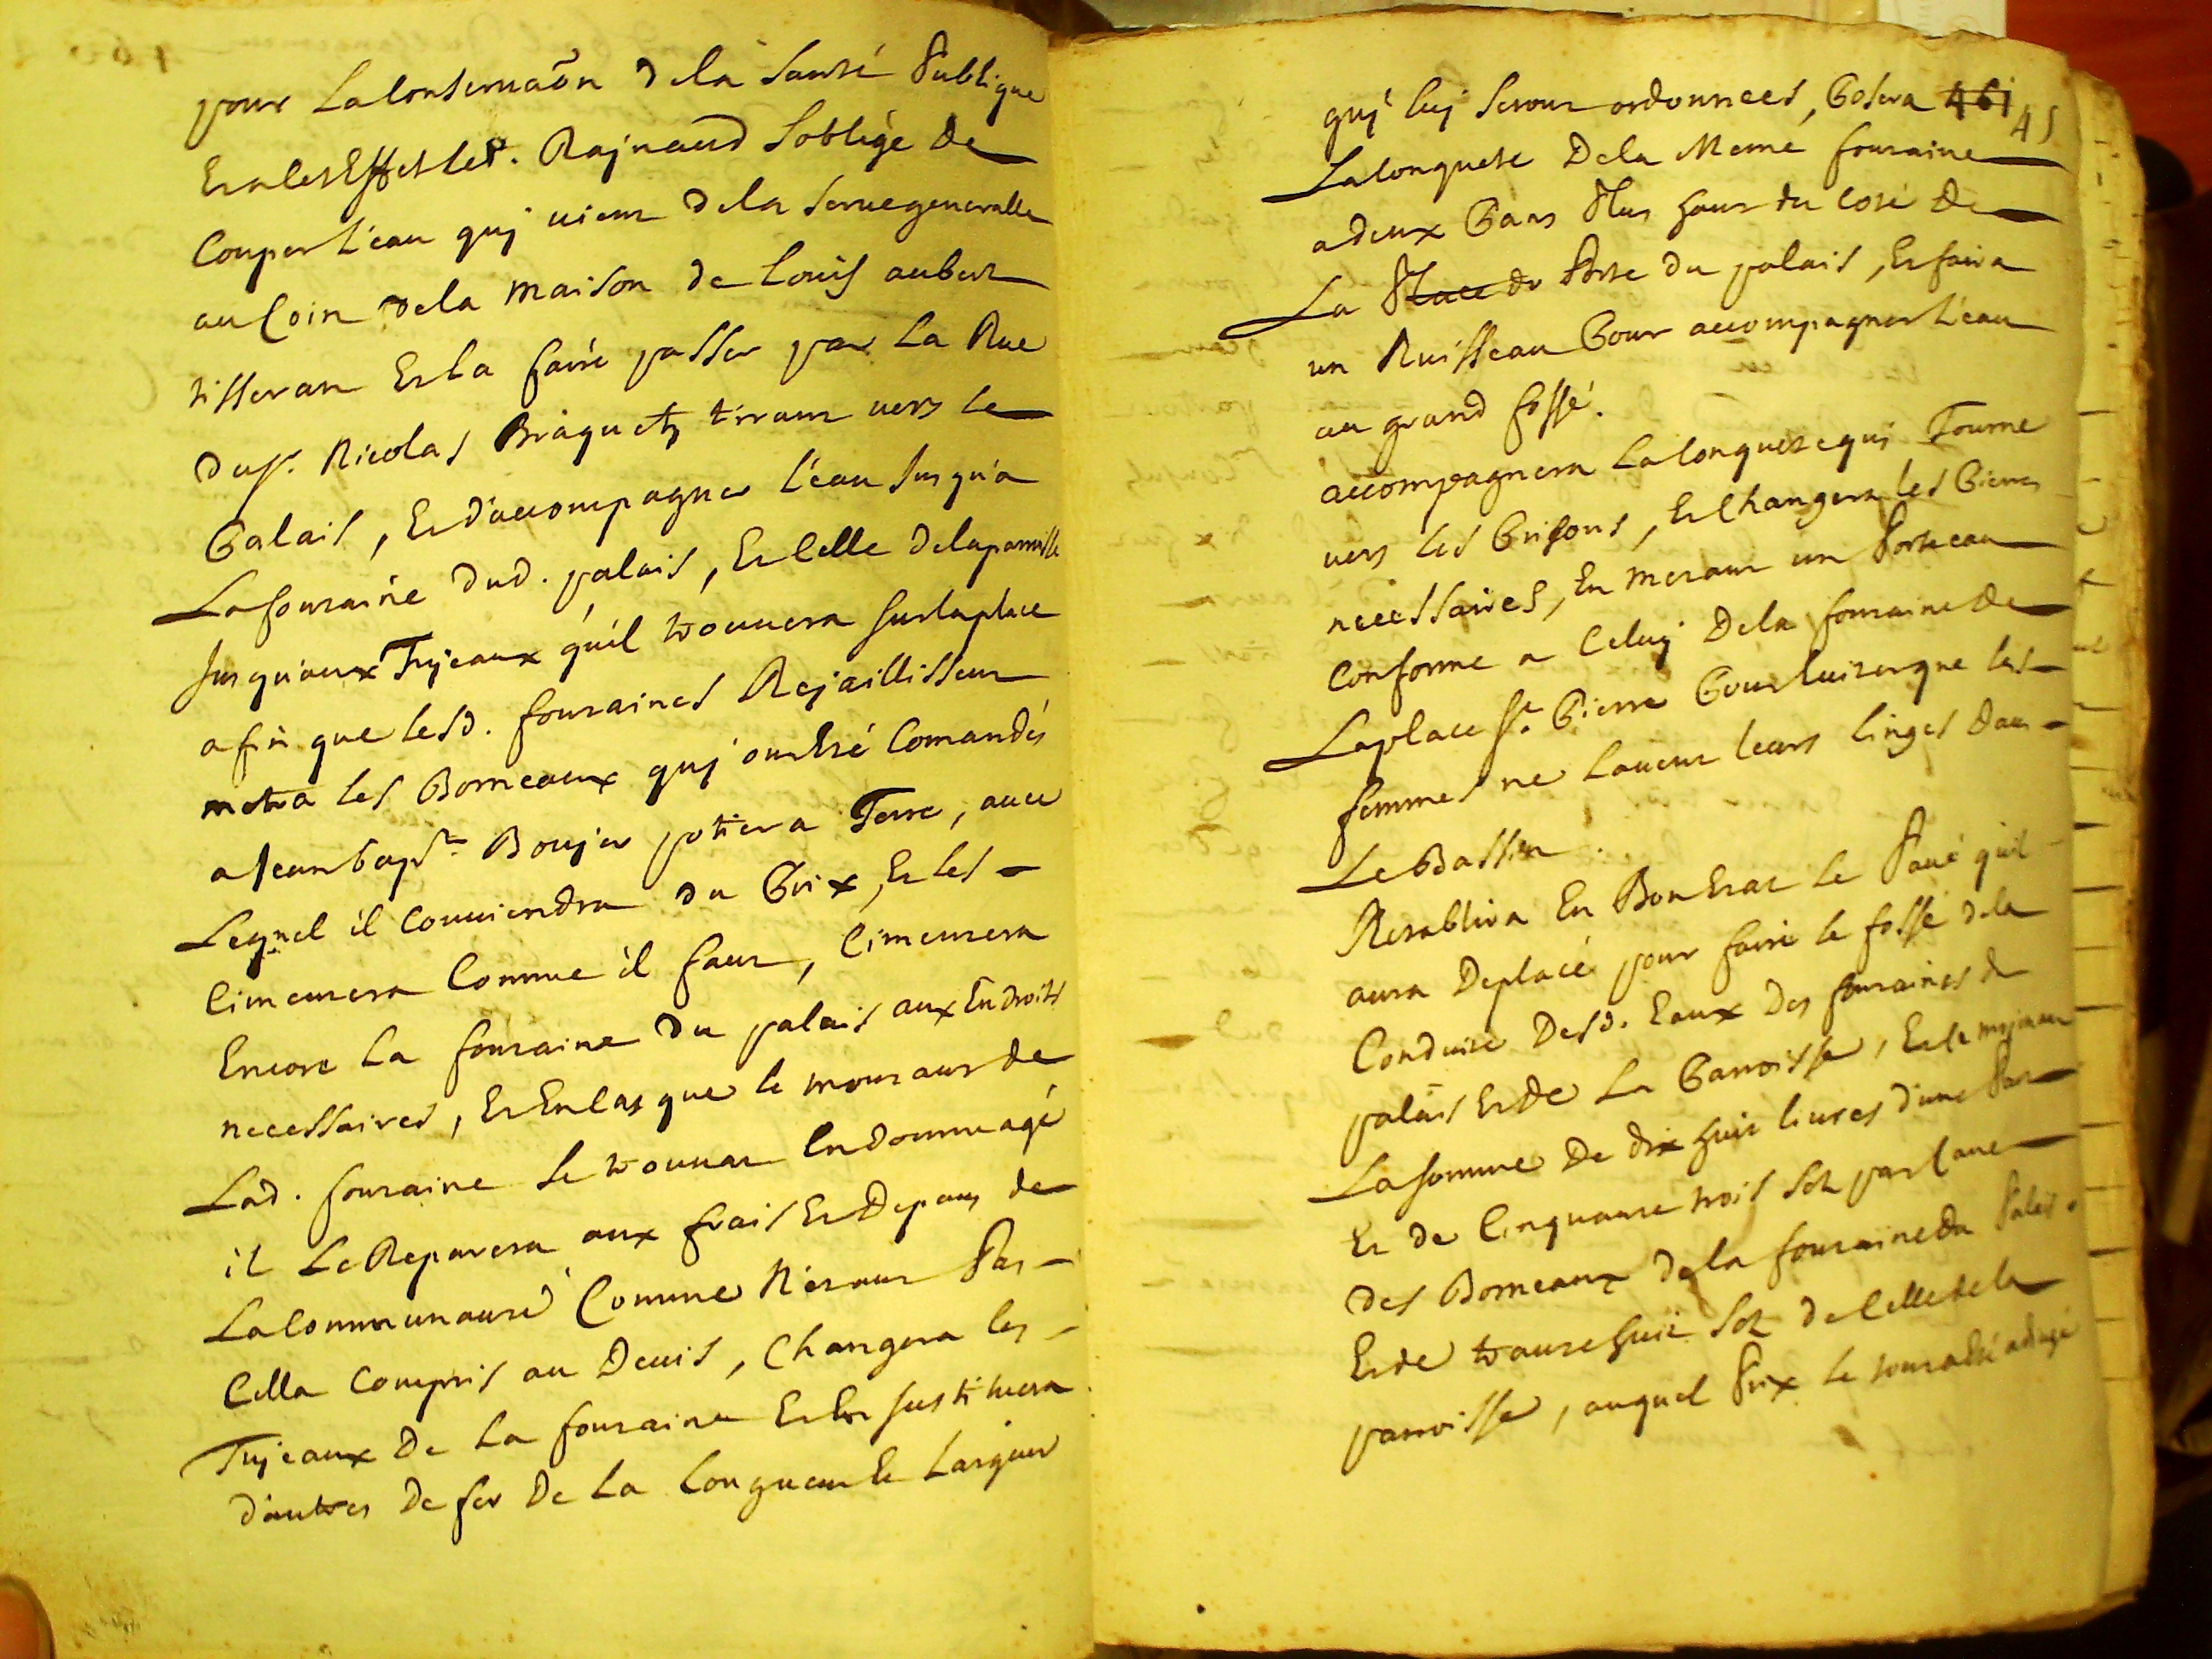 pour La Conservaõn de la santé Publique
Et a les Effet led. Rajnaud s'oblige de
Couper L'eau quj vient de la serve generalle
au Coin de la maison de Louis aubert
tisseran Et La faire passer par La Rue
du sr. Nicolas Braguety tirant vers le
Palais, Et d'accompagner L'eau Jusqu'a
La fontaine dud. palais, Et Celle de la paroisse
Jusqu'aux Tujeaux qu'il trouvera sur la place
afin que lesd. fontaines Rejaillissent
metra les Borneaux quj ont Eté Comandés
a Jean bapte. Boujer potier a Terre, avec
Lequel il Conviendra du Prix, Et les
Cimentera Comme il faut, Cimentera
Encore La fontaine du palais aux Endroits
necessaires, Et En Cas que le montant de
Lad. fontaine se trouvat Endommagé
il Le Reparera aux frais Et Depans de
La Communauté Comme N'etant Pas
Cella Compris au Devis, Changera les
Tujeaux De La fontaine Et les sustituera
d'autres De fer De La Longueur Et Largeur
quj luj seront ordonnees, Posera 461
45
La Conquete De la Meme fontaine
a deux Pans Plus haut du Coté De
La Place du Porte du palais, Et faira
un Ruisseau Pour accompagner L'eau
au grand fossé.
accompagnera La Conquete qui Tourne
vers les Prisons, Et Changera les Pierres
necessaires, En metant un Porteeau
Conforme a Celuj De la fontaine de
La place St. Pierre Pour Eviter que les
femmes ne Lavent leurs linges dans
Le Bassin.
Retablira En Bon Etat le Pavé qu'il
aura Deplacé pour faire le fossé de la
Conduite Desd. Eaux Des fontaines du
palais Et De La Paroisse, Et le mojenant
La somme De dix huit livres d'une Part
Et de Cinquante trois sols par Cane
des Borneaux de la fontaine du Palais
Et de trante huit sols de Celle de la
paroisse, auquel Prix le tout a Eté adjugé